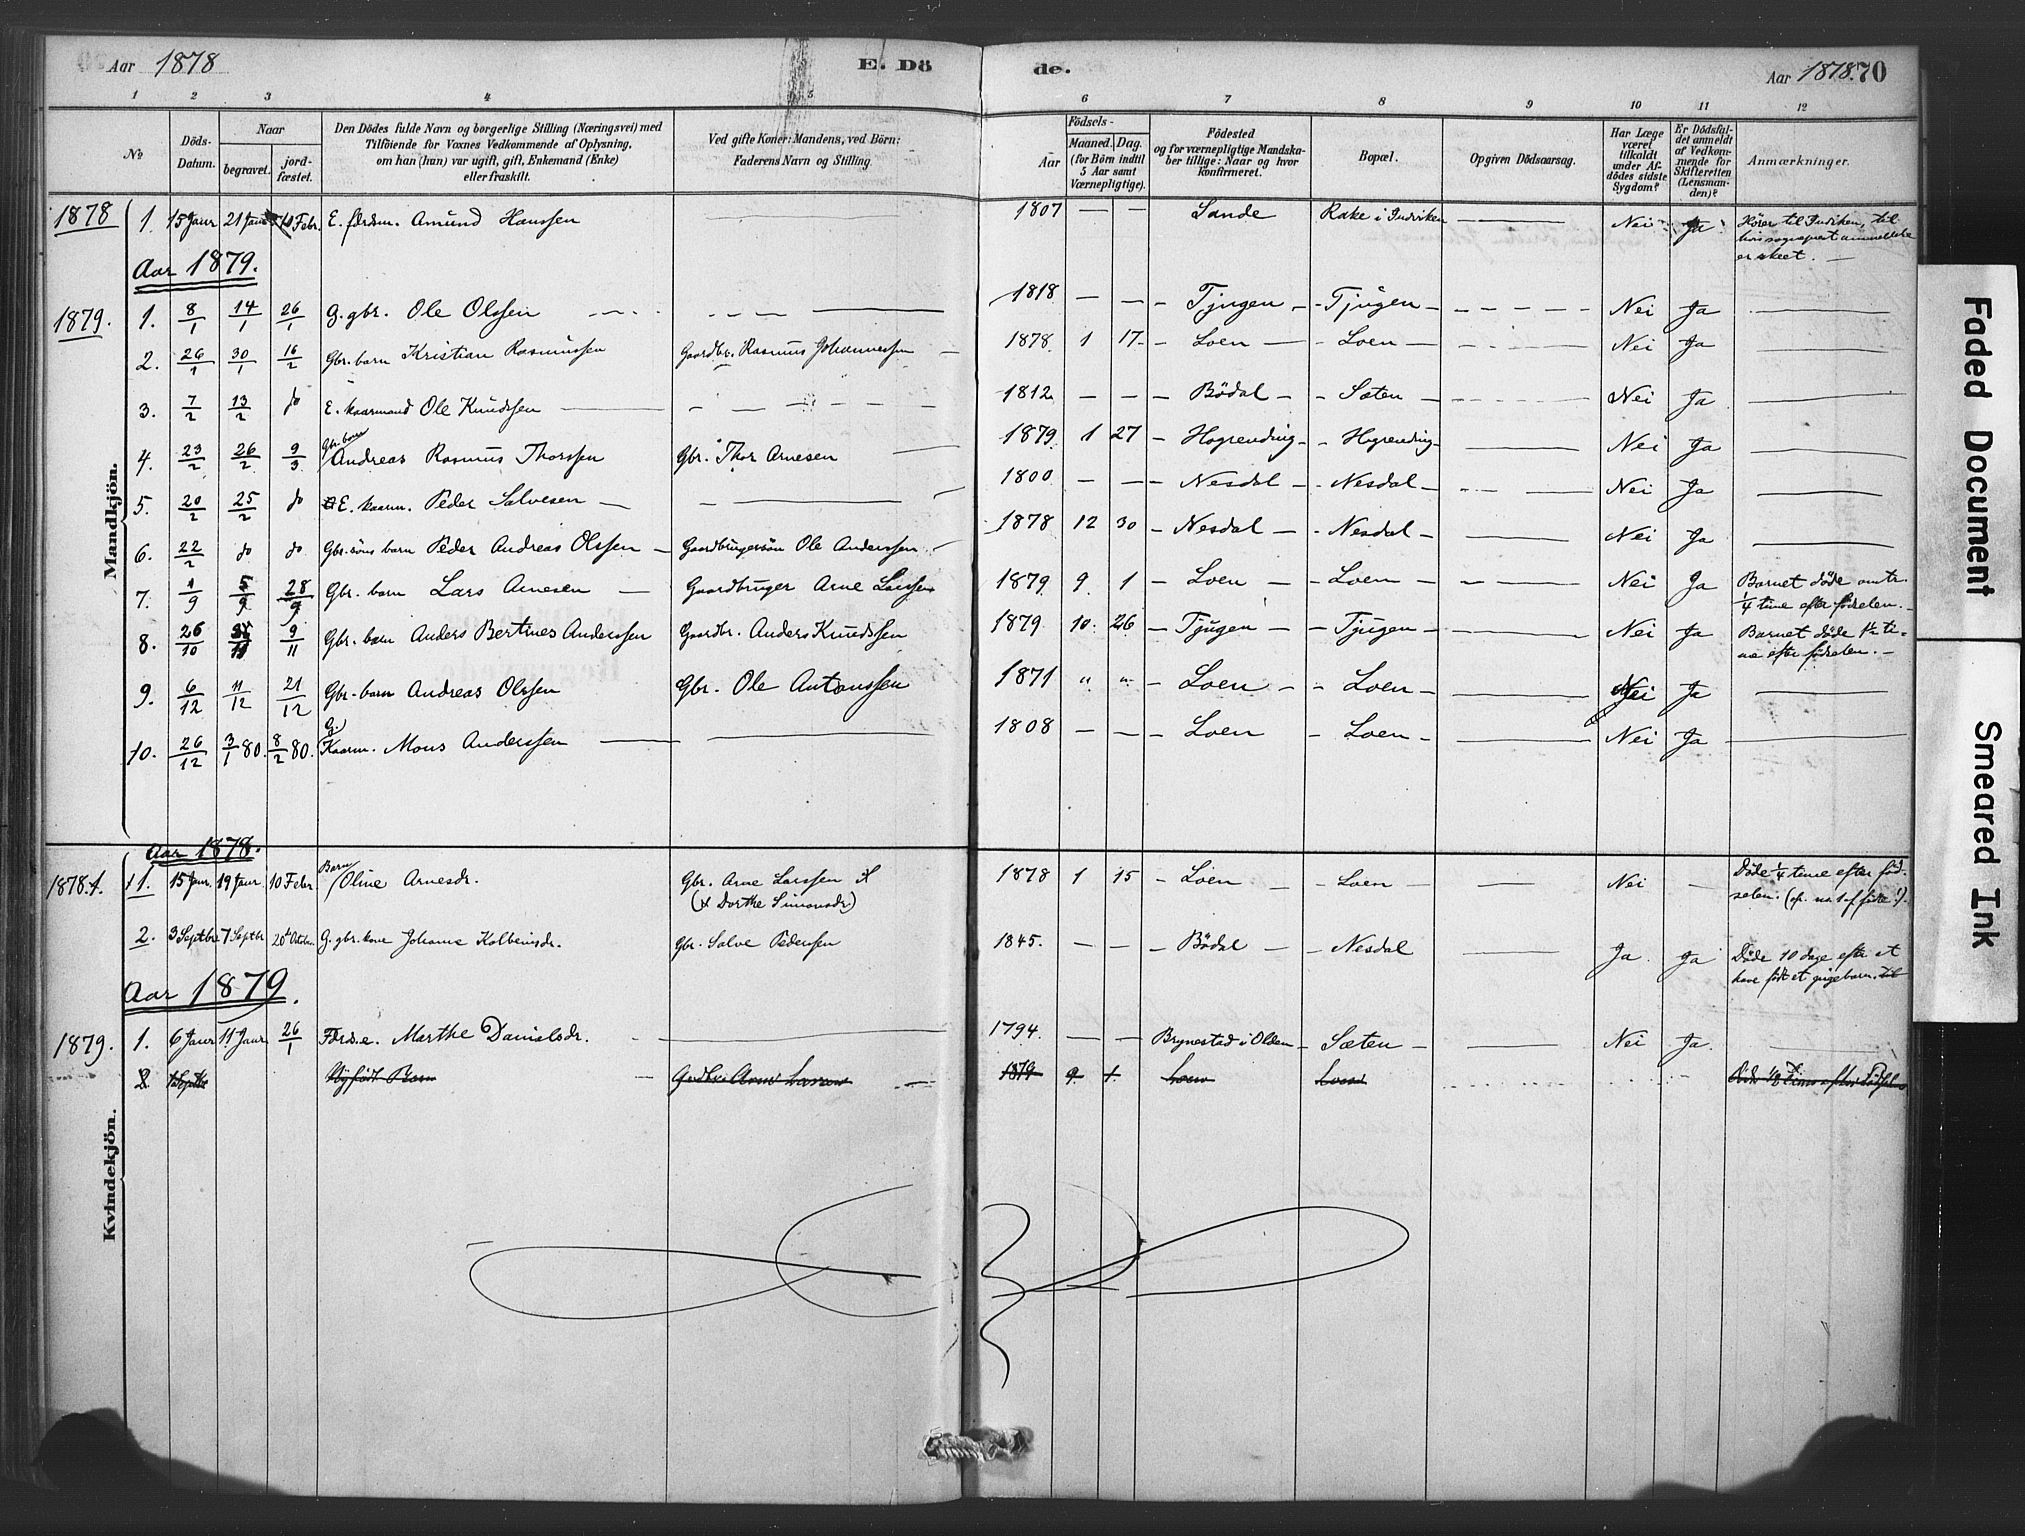 Aar 1878
E. Dö
de.
Aar 1878. 70
1 2 3 4 5 6 7 8 9 10 11 12
No
Döds-Datum.
Naar
begravet.
jord-fæstet.
Den Dödes fulde Navn og borgerlige Stilling (Næringsvei) med
Tilföiende for Voxnes Vedkommende af Oplysning,
om han (hun) var ugift, gift, Enkemand (Enke)
eller fraskilt.
Ved gifte Koner: Mandens, ved Börn:
Faderens Navn og Stilling.
Födsels-
Aar
Maaned. Dag.
(for Börn indtil
5 Aar samt
Værnepligtige).
Födested
og for værnepligtige Mandska-
ber tillige: Naar og hvor
konfirmeret.
Bopæl.
Opgiven Dödsaarsag.
Har Læge
været
tilkaldt
under Af-
dödes sidste
Sygdom?
Er Dödsfal-
det anmeldt
af Vedkom-
mende for
Skifteretten
(Lensman-
den)?
Anmærkninger.
Mandkjön.
1878 1. 15 Janr 21 Janr 10 Febr. E. færdm. Amund Hanssen — 1807 — — Sande Rake i Indviken — Nei Ja Hører til Indviken, til
er skeet. —
Aar 1879.
1879. 1. 8/1 14/1 26/1 G. gbr. Ole Olssen — 1818 — — Tjugen Tjugen — Nei Ja —
2. 26/1 30/1 16/2 Gbr. barn Kristian Rasmussen Gaardbr. Rasmus Johannessen — 1878. 1 17 Loen Loen — Nei Ja —
3. 7/2 13/2 do E. kaarmand Ole Knudssen — 1812 — — Bödal Sæten — Nei Ja —
4. 23/2 26/2 9/3 Gbr. barn Andreas Rasmus Thorssen Gbr. Thor Arnesen — 1879 1 27 Hogrending Hogrending — Nei Ja —
5. 20/2 25/2 do E. kaarm. Peder Salvesen — 1800 — — Nesdal Nesdal — Nei Ja —
6. 22/2 do do Gbr. söns barn Peder Andreas Olssen Gaardbrugersön Ole Anderssen 1878 12 30 Nesdal Nesdal — Nei Ja —
7. 1/9 5/9 28/9 Gbr. barn Lars Arnesen — Gaardbruger Arne Larssen 1879 9. 1 Loen Loen — Nei Ja Barnet döde omtr.
1/4 time efter födselen. —
8. 26/10 9/11 Gbr. barn Anders Bertines Anderssen Gaardbr. Anders Knudssen 1879 10. 26 Tjugen Tjugen — Nei Ja Barnet döde 1/2 ti-
me efter födselen. —
9. 6/12 11/12 21/12 Gbr. barn Andreas Olssen Gbr. Ole Antonssen 1871 " " Loen Loen — Nei Ja —
10. 26/12 3/1 80. 8/2 80. G. Kaarm. Mons Anderssen — 1808 — — Loen Loen — Nei Ja —
Aar 1878.
Kvindekjön.
1878. 1. 1. 15 Janr. 19 Janr. 10 Febr. Barn Oline Arnesdr. Gbr. Arne Larssen
(x Dorthe Simonsdr.)
1878 1 15 Loen Loen — Nei — Döde 1/4 time efter föd-
selen.
2. 3 Septbr 7 Septbr 20d Octbr. G. gbr. kone Johanne Kolbeinsdr. Gbr. Salve Pederssen 1845. — — Bödal Nesdal — Ja. Ja Döde 10 dage efter at
have födt et pigebarn.
Aar 1879.
1879. 1. 6 Janr 11 Janr 26/1 Fdrd. e. Marthe Danielsdr. — 1794. — — Brynestad i Olden Sæten — Nei Ja. —
2. 1 Septbr Nyfödt Barn Grdbr. Arne Larsen 1879 9. 1. Loen Loen — Döde 1/2 Time efter Födselen
Faded Document
Smeared Ink